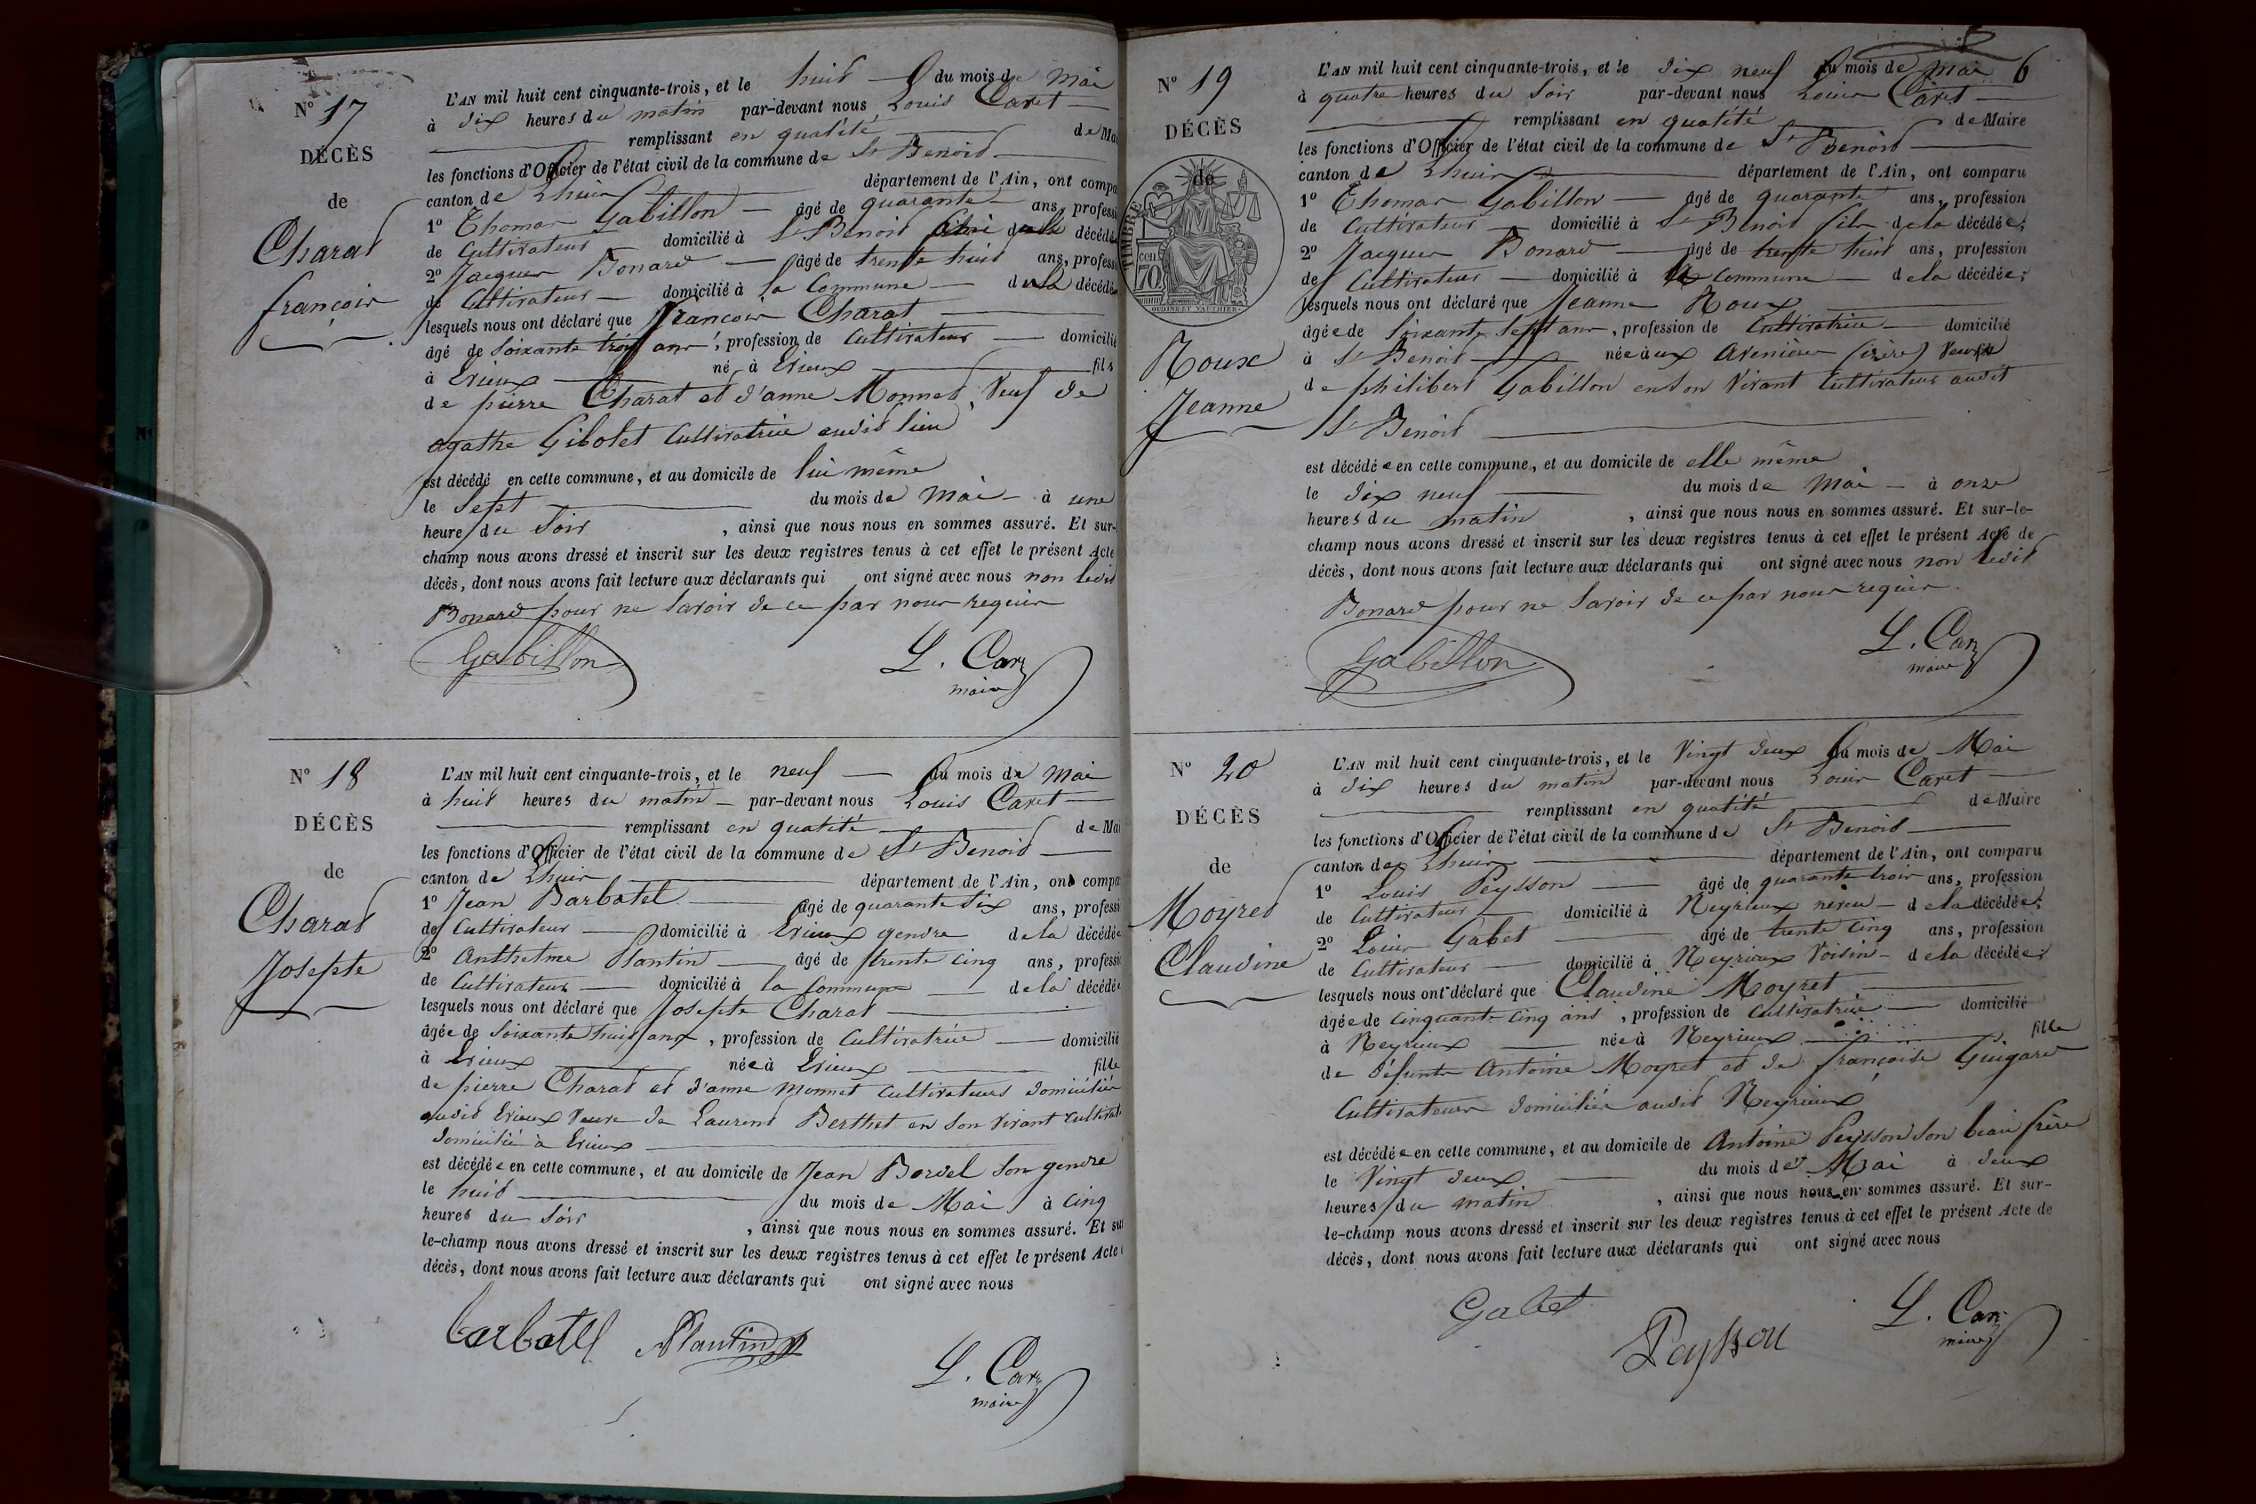 N° 17
DÉCÈS
de
Charat
françois
L'AN mil huit cent cinquante-trois, et le huit du mois de mai
à dix heures du matin par-devant nous Louis Caret
remplissant en qualité de Mai
les fonctions d'Officier de l'état civil de la commune de St Benoit
canton de Lhuis département de l'Ain, ont compa
1° Thomas Gabillon âgé de quarante ans, professi
de Cultivateur domicilié à St Benoit décédé
2° Jacques Bonard âgé de trente huit ans, profess
de Cultivateur domicilié à la Commune décédé
lesquels nous ont déclaré que françois Charat
âgé de Soixante trois ans, profession de Cultivateur domicilié
à Erieux né à Erieux fils
de pierre Charat et d'anne Monnet, Veuf de
agathe Gibolet Cultivatrice audit lieu
est décédé en cette commune, et au domicile de lui même
le Sept du mois de Mai à une
heure du Soir, ainsi que nous nous en sommes assuré. Et sur-
champ nous avons dressé et inscrit sur les deux registres tenus à cet effet le présent Acte
décès, dont nous avons fait lecture aux déclarants qui ont signé avec nous non ledit
Bonard pour ne Savoir de ce par nous requis
Gabillon
L. Car
maire
N° 18
DÉCÈS
de
Charat
Josephte
L'AN mil huit cent cinquante-trois, et le neuf du mois de mai
à huit heures du matin par-devant nous Louis Caret
remplissant en qualité de Mai
les fonctions d'Officier de l'état civil de la commune de St Benoit
canton de Lhuis département de l'Ain, ont compa
1° Jean Barbatel âgé de quarante Six ans, professi
de Cultivateur domicilié à Erieux gendre de la décédée
2° Anthelme Plantin âgé de trente cinq ans, professi
de Cultivateur domicilié à la Commune de la décédée
lesquels nous ont déclaré que Josephte Charat
âgée de Soixante huit ans, profession de Cultivatrice domicilié
à Erieux née à Erieux fille
de pierre Charat et d'anne Monnet Cultivateurs domiciliés
audit Erieux Veuve de Laurent Berthet en Son Vivant Cultivat
domicilié à Erieux
est décédée en cette commune, et au domicile de Jean Bordel Son gendre
le huit du mois de Mai à cinq
heures du Soir, ainsi que nous nous en sommes assuré. Et sur
le-champ nous avons dressé et inscrit sur les deux registres tenus à cet effet le présent Acte
décès, dont nous avons fait lecture aux déclarants qui ont signé avec nous
barbatel Plantin
L. Car
maire
6
N° 19
DÉCÈS
de
TIMBRE
70
Roux
Jeanne
L'AN mil huit cent cinquante-trois, et le dix neuf du mois de mai
à quatre heures du Soir par-devant nous Louis Caret
remplissant en qualité de Maire
les fonctions d'Officier de l'état civil de la commune de St Benoit
canton de Lhuis département de l'Ain, ont comparu
1° Thomas Gabillon âgé de quarante ans, profession
de Cultivateur domicilié à St Benoit fils de la décédée;
2° Jacques Bonard âgé de trente huit ans, profession
de Cultivateur domicilié à la Commune de la décédée;
lesquels nous ont déclaré que Jeanne Roux
âgée de Soixante Sept ans, profession de Cultivatrice domicilié
à St Benoit née aux Avenières (isère) Veuve
de philibert Gabillon en Son Vivant Cultivateur audit
St Benoit
est décédée en cette commune, et au domicile de elle même
le dix neuf du mois de Mai à onze
heures du matin, ainsi que nous nous en sommes assuré. Et sur-le-
champ nous avons dressé et inscrit sur les deux registres tenus à cet effet le présent Acte de
décès, dont nous avons fait lecture aux déclarants qui ont signé avec nous non ledit
Bonard pour ne Savoir de ce par nous requis.
Gabillon
L. Car
maire
N° 20
DÉCÈS
de
Moyret
Claudine
L'AN mil huit cent cinquante-trois, et le Vingt deux du mois de Mai
à dix heures du matin par-devant nous Louis Caret
remplissant en qualité de Maire
les fonctions d'Officier de l'état civil de la commune de St Benoit
canton de Lhuis département de l'Ain, ont comparu
1° Louis Peysson âgé de quarante trois ans, profession
de Cultivateur domicilié à Neyrieux néveu de la décédée;
2° Louis Gabet âgé de trente cinq ans, profession
de Cultivateur domicilié à Neyrieux Voisin de la décédée;
lesquels nous ont déclaré que Claudine Moyret
âgée de cinquante cinq ans, profession de Cultivatrice domicilié
à Neyrieux née à Neyrieux fille
de défunts Antoine Moyret et de françoise Guigard
Cultivateurs domiciliés audit Neyrieux
est décédée en cette commune, et au domicile de Antoine Peysson Son beau frère
le Vingt deux du mois de Mai à deux
heures du matin, ainsi que nous nous en sommes assuré. Et sur-
le-champ nous avons dressé et inscrit sur les deux registres tenus à cet effet le présent Acte de
décès, dont nous avons fait lecture aux déclarants qui ont signé avec nous
Gabet
Peysson
L. Car
maire